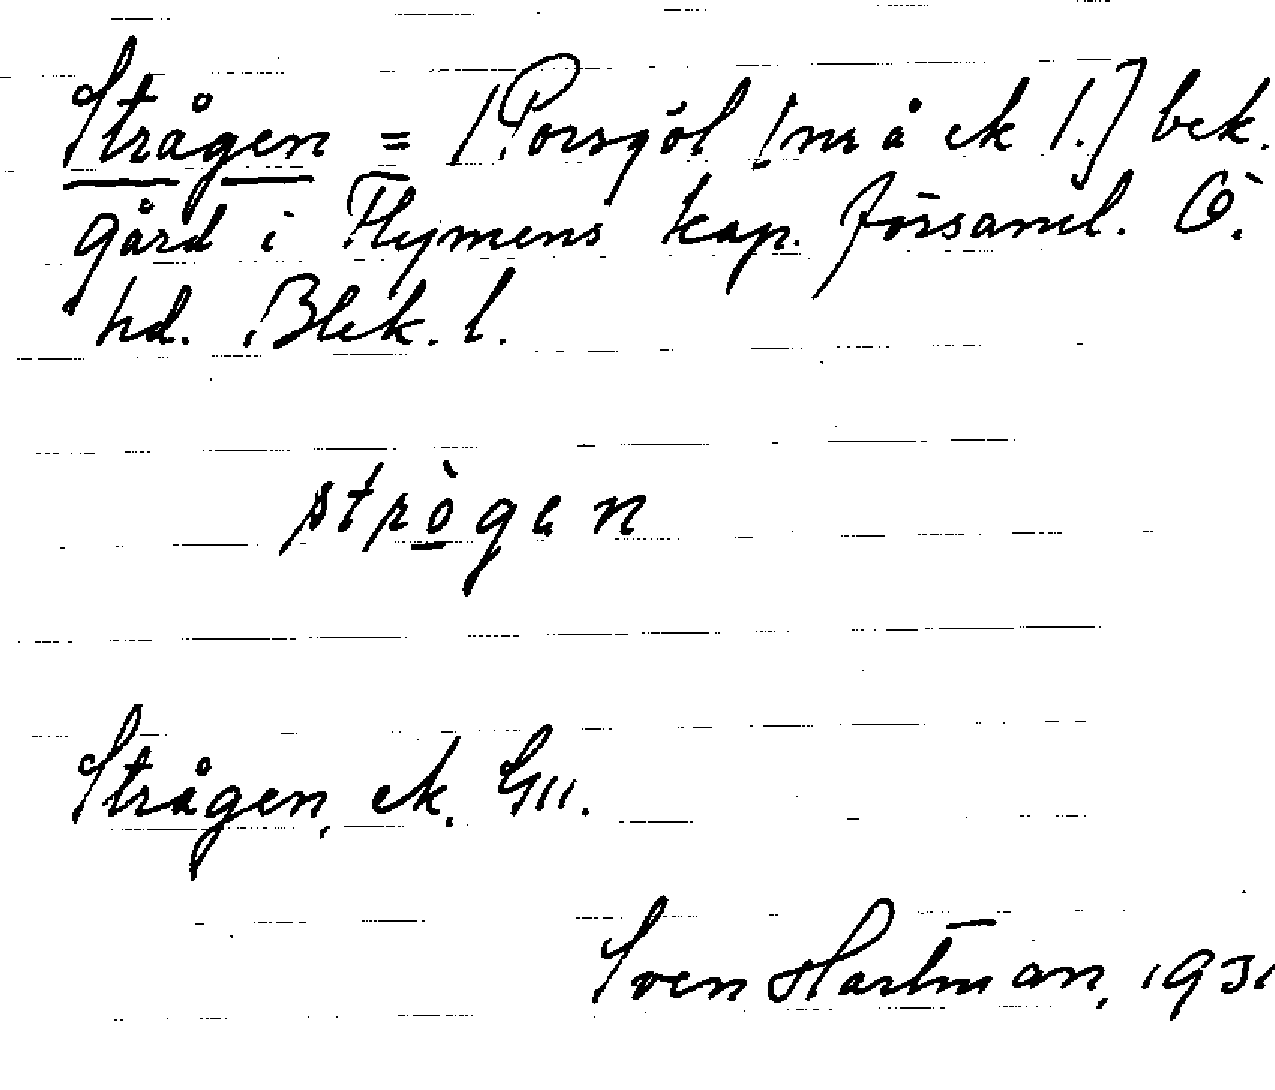 Strågen = [Porsgöl [nr å ek l.] bek.
gård i Flymens kap. församl. Ö.
hd. Blek. l.
strògen
Strågen, ek. GII.
Sven Hartman, 1931